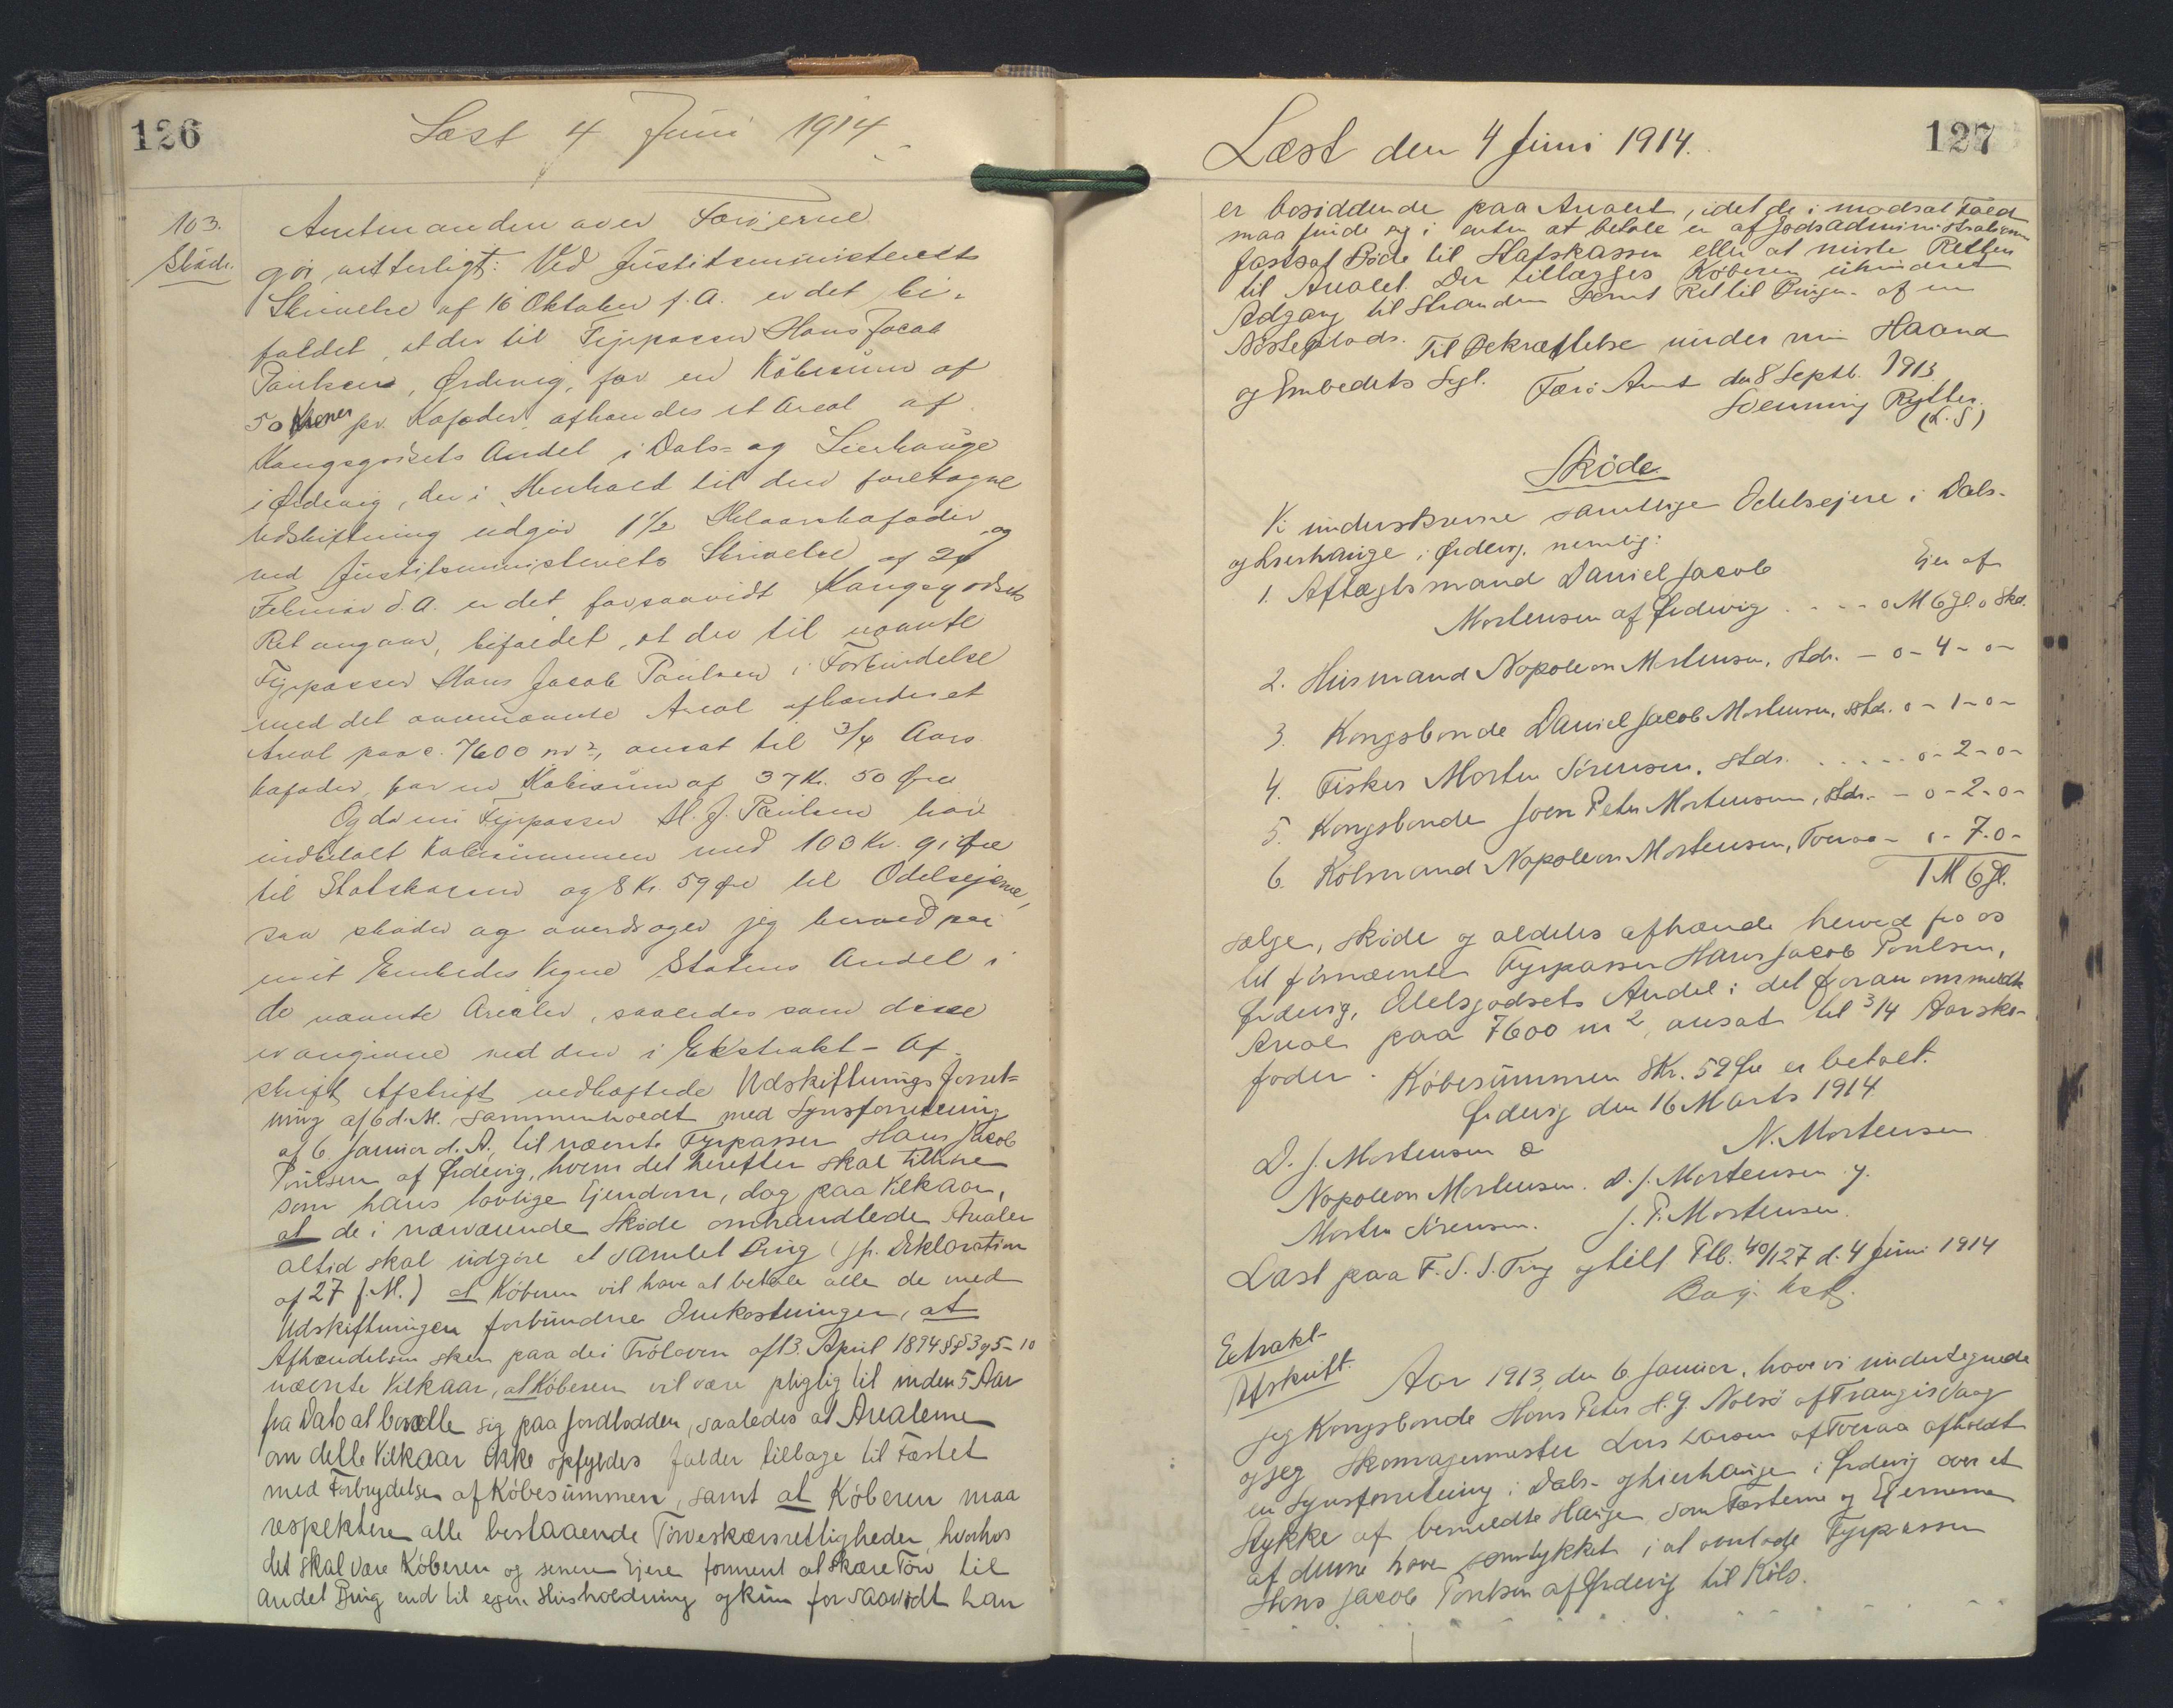 126
Læst 4 Juni 1914
103.
Skøde.
Amtmanden over Færøerne
gör vitterligt: Ved Justitsministeriets
Skrivelse af 16 Oktober f. A. er det bi-
faldet, at der til Fyrpasser Hans Jacob
Poulsen, Ørdevig, for en Købesum af
50 Kroner pr. Kofoder afhændes et Areal af
Kongsgodsets Andel i Dals- og Lierhauge
i Ørdevig, der i Henhold til den foretagne
Udskiftning udgør 1½ Skovkofoder og
ved Justitsministeriets Skrivelse af 24
Februar d. A. er det forsaavidt Kongsgodsets
Ret angaar, bifaldet, at der til nævnte
Fyrpasser Hans Jacob Poulsen i Forbindelse
med det ovennævnte Areal afhændes et
Areal paa c. 7600 m², ansat til 3/4 Aars
kofoder, for en Købesum af 37 Kr. 50 Øre
Og da nu Fyrpasser H. J. Poulsen har
indbetalt Købesummen med 103 Kr. 91 Øre
til Statskassen og 8 Kr. 59 Øre til Odelsejerne,
saa skøder og overdrager jeg herved paa
mit Embedes Vegne Statens Andel i
de nævnte Arealer, saaledes som disse
er angivne ved den i Ekstrakt-Af-
skrift Afskrift vedhæftede Udskiftningsforret-
ning af 6 d. M. sammenholdt med Synsforretning
af 6 Januar d. A., til nævnte Fyrpasser Hans Jacob
Poulsen af Ørdevig, hvem det herefter skal tilhøre
som hans lovlige Ejendom, dog paa Vilkaar,
at de i nærværende Skøde omhandlede Arealer
altid skal udgøre et samlet Brug (jfr. Deklaration
af 27 f. M.) at Køberen vil have at betale alle de med
Udskiftningen forbundne Omkostninger, at
Afhændelsen sker paa de i Frøloven af 13. April 1894 §§ 3 og 5-10
nævnte Vilkaar, at Køberen vil være pligtig til inden 5 Aar
fra Dato at bosætte sig paa Jordlodden, saaledes at Arealerne
om dette Vilkaar ikke opfyldes falder tilbage til Fæstet
med Fortrydelse af Købesummen, samt at Køberen maa
respektere alle bestaaende Tørveskærsrettigheder, hvorhos
det skal være Køberen og senere Ejere forment at skære Tørv til
andet Brug end til egen Husholdning og kun forsaavidt han
127
Læst den 4 Juni 1914.
er bosiddende paa Arealet, idet de i modsat Fald
maa finde sig i enten at betale en af Godsadministrationen
fastsat Bøde til Statskassen eller at miste Retten
til Arealet. Der tillægges Køberen uhindret
Adgang til Stranden samt Ret til Brugen af en
Nøsteplads. Til Bekræftelse under min Haand
og Embedets Segl. Færø Amt den 8 Septb. 1913
Svenning Rytter.
(L. S)
Skøde
Vi underskrevne samtlige Odelsejere i Dals-
og Lierhauge i Ørdevig, nemlig:
1. Aftægtsmand Daniel Jacob Ejer af
Mortensen af Ørdevig . . . - o M 6 Gl. o Skd.
2. Husmand Napoleon Mortensen, stds. - o - 4 - o -
3. Kongsbonde Daniel Jacob Mortensen, stds. o - 1 - o -
4. Fisker Morten Sörensen, stds. . . . . . o - 2 - o -
5. Kongsbonde Joen Peter Mortensen, stds. - o - 2 - o -
6. Købmand Napoleon Mortensen, Tveraa - o - 7 - o -
1 M 6 Gl.
sælge, skøde og aldeles afhænde herved fra os
til fornævnte Fyrpasser Hans Jacob Poulsen,
Ørdevig, Odelsgodsets Andel i det foran ommeldte
Areal paa 7600 m², ansat til 3/4 Aarsko-
foder. Købesummen 8 Kr. 59 Øre er betalt.
Ørdevig den 16 Marts 1914
D. J. Mortensen æ N. Mortensen
Napoleon Mortensen. D. J. Mortensen y.
Morten Sörensen. J. P. Mortensen.
Læst paa F. S. S. Ting og tilf Ptb. 40/127 d. 4 Juni 1914
Extrakt-
Afskrift. Aar 1913 den 6 Januar, have vi undertegnede
jeg Kongsbonde Hans Peter H. G. Nolsö af Trangisvaag
og jeg Skomagermester Lars Larsen af Tveraa afholdt
en Synsforretning i Dals- og Lierhaugen i Ørdevig over et
Stykke af bemeldte Hauge, som Fæsterne og Ejerne
af denne have samtykket i at overlade Fyrpasser
Hans Jacob Poulsen af Ørdevig til Köbs.